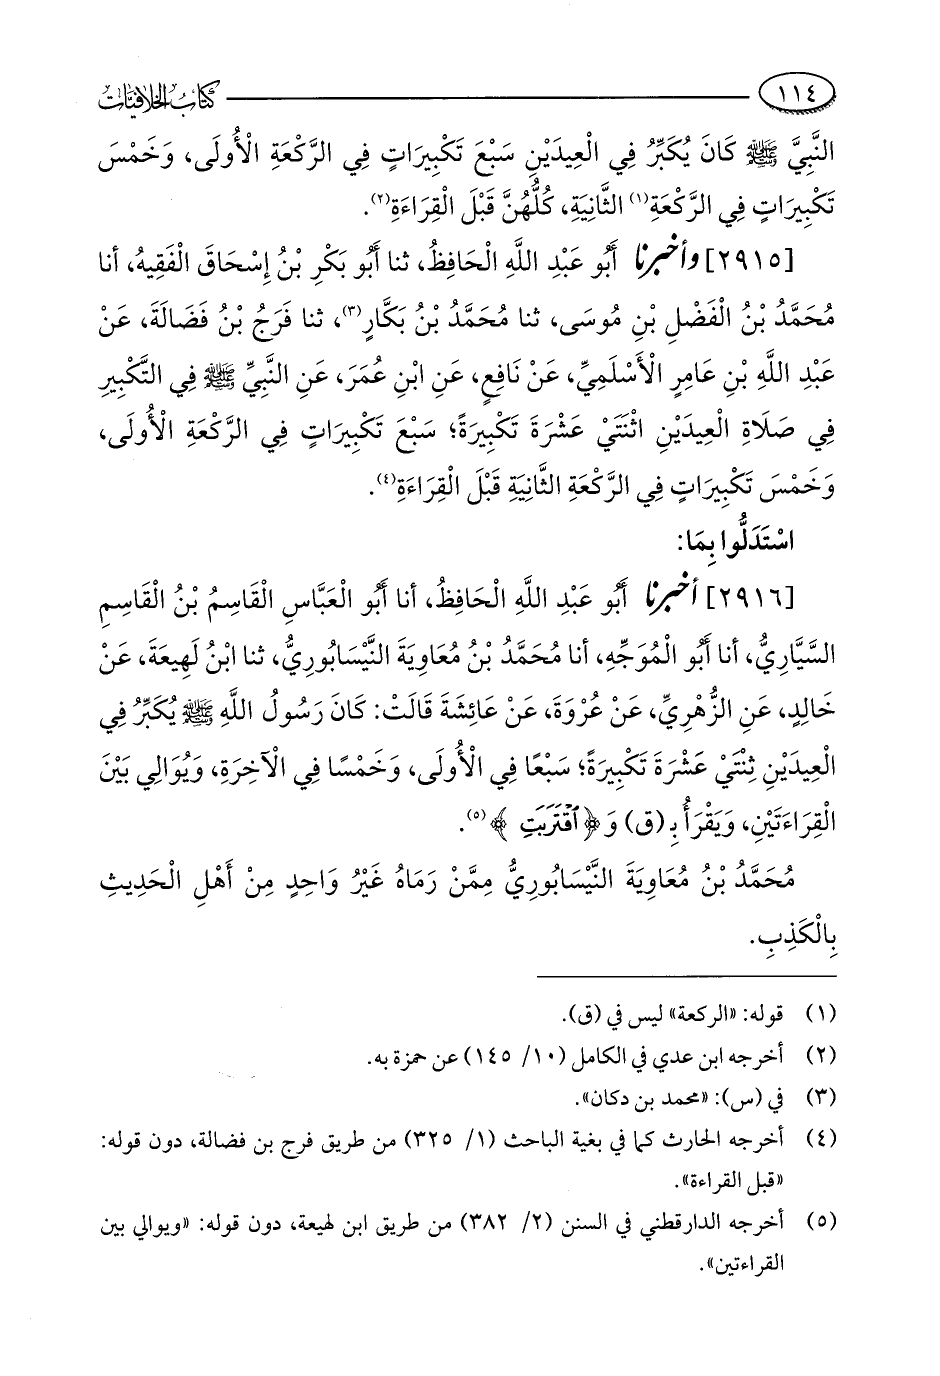 ١١٤ كتاب الخلافيات
النَّبِيَّ ﷺ كَانَ يُكَبِّرُ فِي الْعِيدَيْنِ سَبْعَ تَكْبِيرَاتٍ فِي الرَّكْعَةِ الْأُولَى، وَخَمْسَ
تَكْبِيرَاتٍ فِي الرَّكْعَةِ(١) الثَّانِيَةِ، كُلُّهُنَّ قَبْلَ الْقِرَاءَةِ(٢).
[٢٩١٥] وأخبرنا أَبُو عَبْدِ اللَّهِ الْحَافِظُ، ثنا أَبُو بَكْرِ بْنُ إِسْحَاقَ الْفَقِيهُ، أنا
مُحَمَّدُ بْنُ الْفَضْلِ بْنِ مُوسَى، ثنا مُحَمَّدُ بْنُ بَكَّارٍ(٣)، ثنا فَرَجُ بْنُ فَضَالَةَ، عَنْ
عَبْدِ اللَّهِ بْنِ عَامِرٍ الْأَسْلَمِيِّ، عَنْ نَافِعٍ، عَنِ ابْنِ عُمَرَ، عَنِ النَّبِيِّ ﷺ فِي التَّكْبِيرِ
فِي صَلَاةِ الْعِيدَيْنِ اثْنَتَيْ عَشْرَةَ تَكْبِيرَةً؛ سَبْعَ تَكْبِيرَاتٍ فِي الرَّكْعَةِ الْأُولَى،
وَخَمْسَ تَكْبِيرَاتٍ فِي الرَّكْعَةِ الثَّانِيَةِ قَبْلَ الْقِرَاءَةِ(٤).
اسْتَدَلُّوا بِمَا:
[٢٩١٦] أخبرنا أَبُو عَبْدِ اللَّهِ الْحَافِظُ، أنا أَبُو الْعَبَّاسِ الْقَاسِمُ بْنُ الْقَاسِمِ
السَّيَّارِيُّ، أنا أَبُو الْمُوَجِّهِ، أنا مُحَمَّدُ بْنُ مُعَاوِيَةَ النَّيْسَابُورِيُّ، ثنا ابْنُ لَهِيعَةَ، عَنْ
خَالِدٍ، عَنِ الزُّهْرِيِّ، عَنْ عُرْوَةَ، عَنْ عَائِشَةَ قَالَتْ: كَانَ رَسُولُ اللَّهِ ﷺ يُكَبِّرُ فِي
الْعِيدَيْنِ ثِنْتَيْ عَشْرَةَ تَكْبِيرَةً؛ سَبْعًا فِي الْأُولَى، وَخَمْسًا فِي الْآخِرَةِ، وَيُوَالِي بَيْنَ
الْقِرَاءَتَيْنِ، وَيَقْرَأُ بِـ(ق) وَ﴿ٱقْتَرَبَتِ﴾(٥).
مُحَمَّدُ بْنُ مُعَاوِيَةَ النَّيْسَابُورِيُّ مِمَّنْ رَمَاهُ غَيْرُ وَاحِدٍ مِنْ أَهْلِ الْحَدِيثِ
بِالْكَذِبِ.
(١) قوله: «الركعة» ليس في (ق).
(٢) أخرجه ابن عدي في الكامل (١٠/ ١٤٥) عن حمزة به.
(٣) في (س): «محمد بن دكان».
(٤) أخرجه الحارث كما في بغية الباحث (١/ ٣٢٥) من طريق فرج بن فضالة، دون قوله:
«قبل القراءة».
(٥) أخرجه الدارقطني في السنن (٢/ ٣٨٢) من طريق ابن لهيعة، دون قوله: «ويوالي بين
القراءتين».